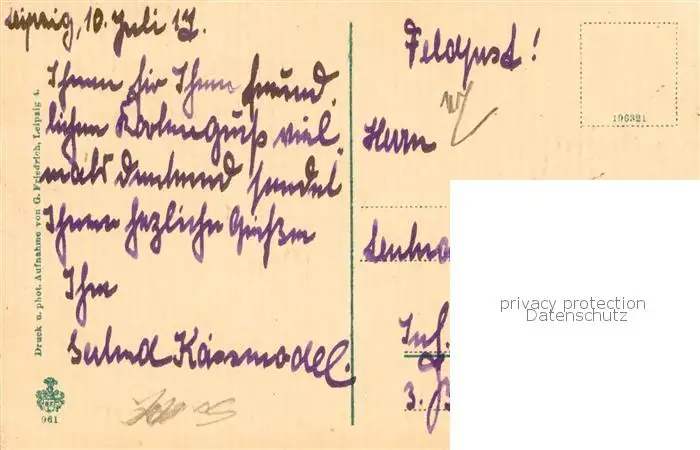 Leipzig, 10. Juli 17.
Ihnen für Ihren freund
lichen Kartengruß viel
mals dankend sendet
Ihnen herzliche Grüße
Ihr
Käsemodel.
Feldpost!
Herrn
Inf.
3.
196321
Druck u. phot. Aufnahme von G. Friedrich, Leipzig 4.
961
privacy protection
Datenschutz